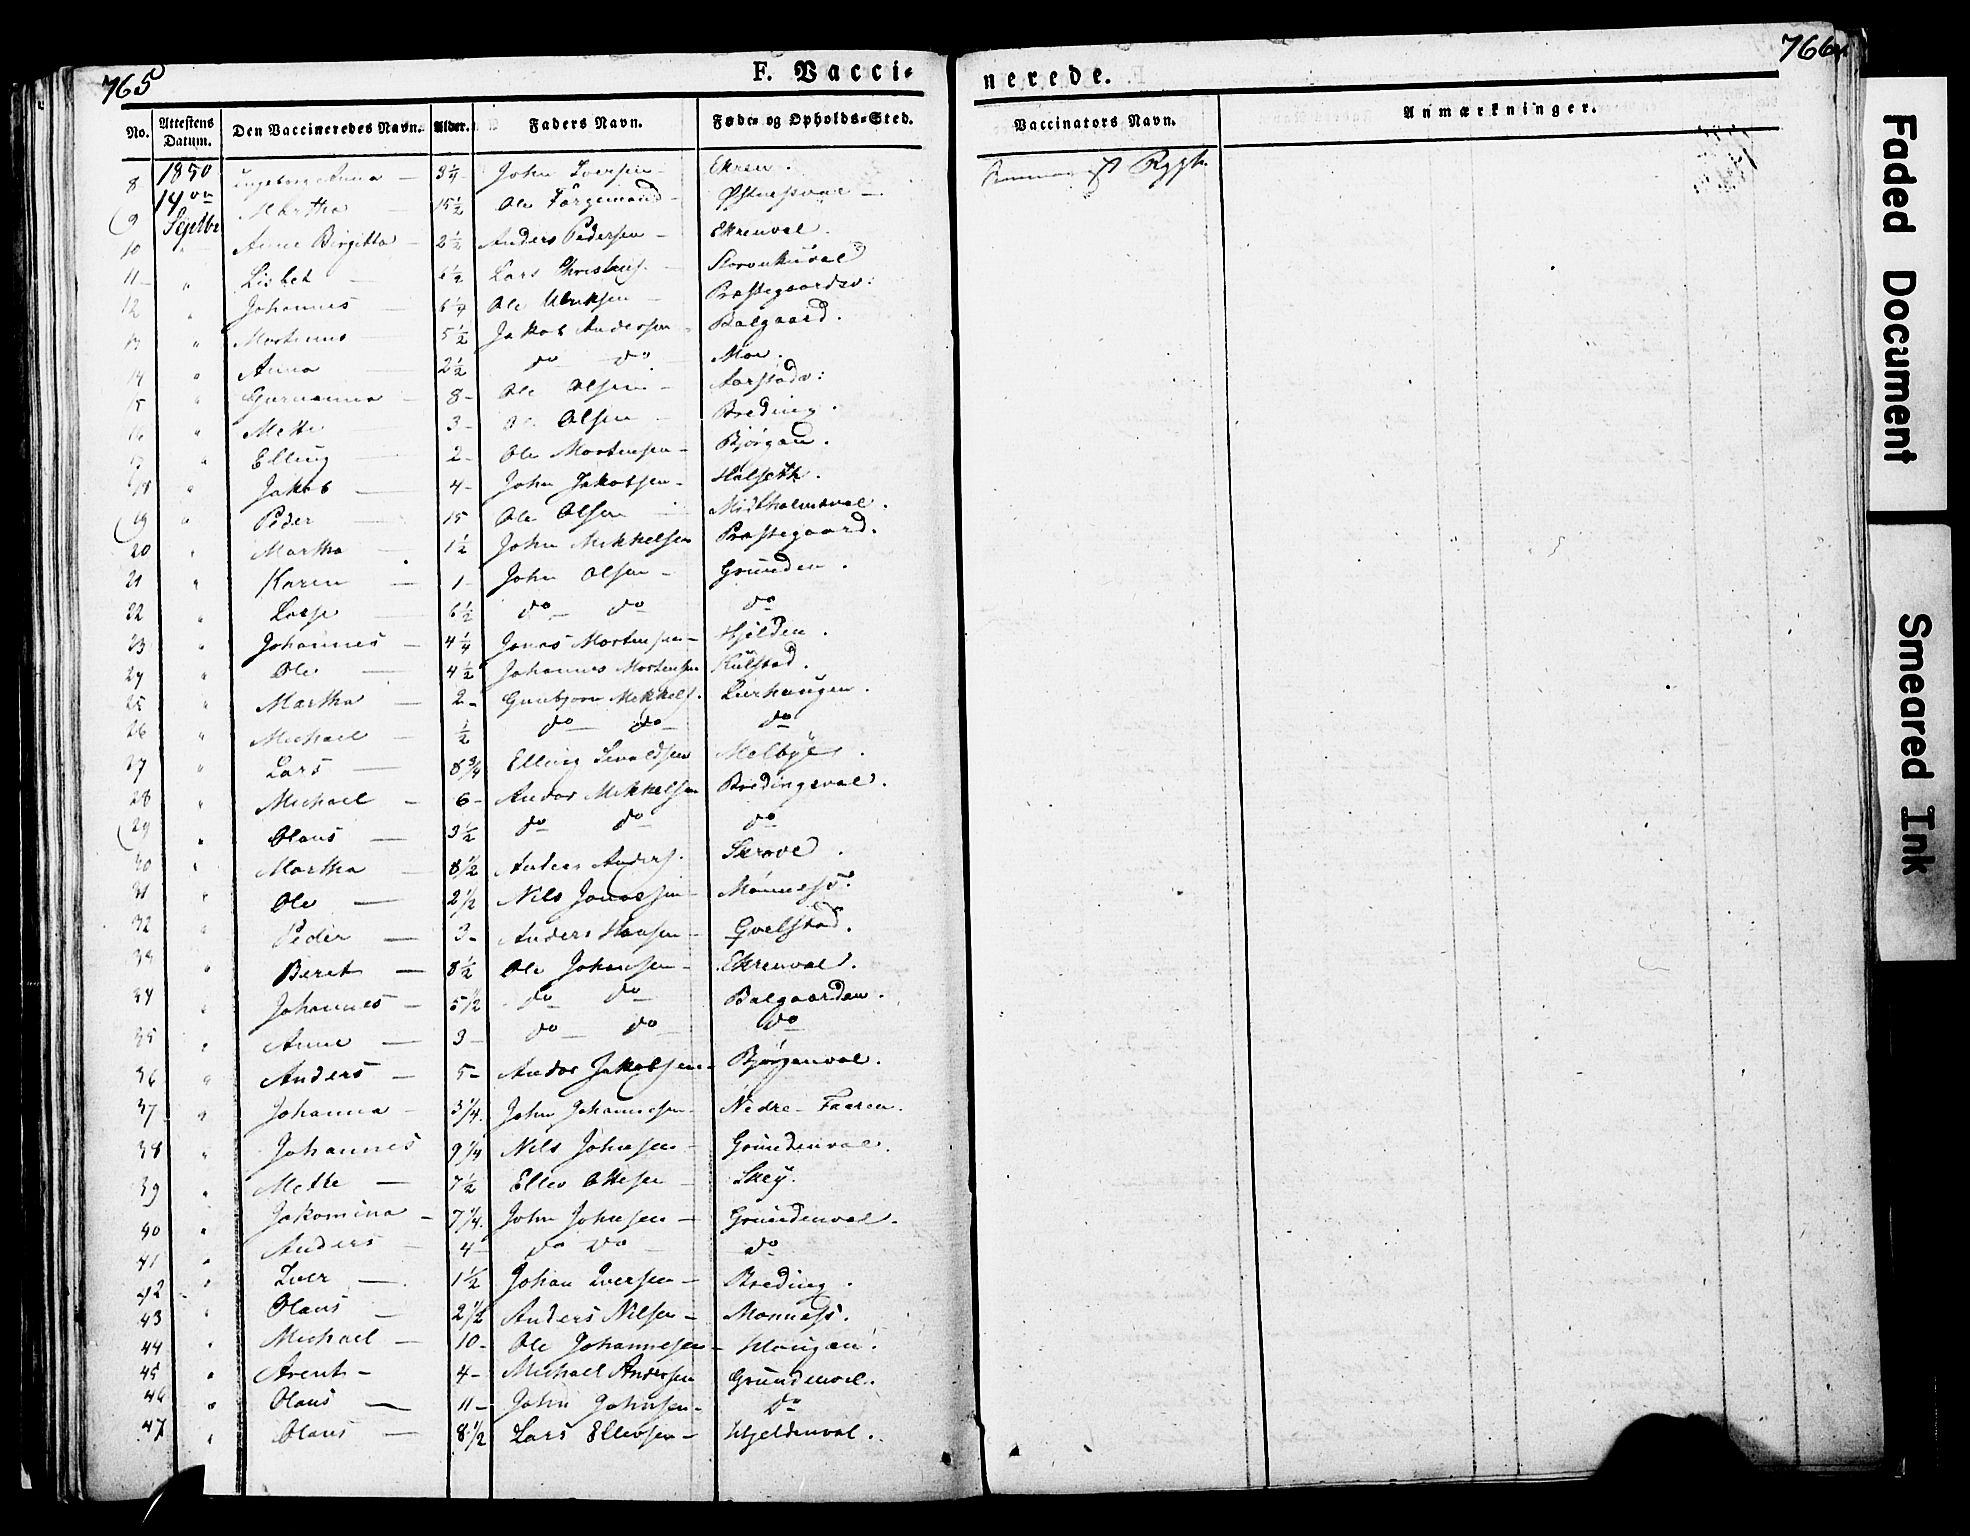 765
F. Vacci-
nerede.
766
No. Attestens Datum. Den Vaccineredes Navn. Alder. Faders Navn. Føde- og Opholds-Sted.
Vaccinators Navn. Anmærkninger.
1850
14
Septbr
8 Ingeborg Anna — 3/4 John Iversen — Ekren.
9 Martha — 15 1/2 Ole Færgemand — —
10 " Anne Birgitta — 2 1/2 Anders Pedersen — Ekrenval.
11 — " Lisbet — 1/2 Lars —
12 " Johannes — 6 1/4 Ole Ulriksen — Præstegaardsv:
13 " 5 1/2 Jakob Andersen Balgaard.
14 " Anna — 2 1/2 do — do Moe.
15 " — 8 — Ole Olsen — Aarstadv:
16 " Mette — 3 — Ole Olsen — Breding.
17 " Elling — 2 — Ole Mortensen — Bjørgan.
18 " Jakob — 4 — John Jakobsen — Halseth.
19 " Peder — 15 Ole Olsen — Midtholmsval.
20 " Martha — 1 1/2 John Mikkelsen Præstegaard.
21 " Karen — 1 — John Olsen — Grunden.
22 " — 6 1/2 do — do do
23 " Johannes — 4 1/4 Jonas Mortensen — Hjelden.
24 " Ole — 4 1/2 Johannes Mortensen Kulstad.
25 " Martha — 2 — Gunbjørn Mikkels. Lurhaugen.
26 " Michael — 1/2 do — do — do
27 " Lars — 8 3/4 Elling Sivaldsen Melbye.
28 " Michael — 6 — Andor Mikkelsen Bredingsval.
29 " Olaus — 3 1/2 do do do
30 " Martha — 8 1/2 Anders Anders. Skrove.
31 " Ole — 2 1/2 Nils Jonassen —
32 " Peder — 3 — Anders Hansen — Qvelstad.
33 " Beret — 8 1/2 Ole Johansen — Ekrenval.
34 " Johannes — 5 1/2 do do Balgaarden.
35 " Anne — 3 — do — do do
36 " Anders — 5 — Andor Jakobsen — Bjørgenval.
37 " Johanna — 3 1/4. John Johannesen — Nedre-Faaren.
38 " Johannes 9 1/4 Nils Johnsen — Grundenval.
39 " Mette — 7 1/2 Ellev Ottesen — Skey.
40 " Jakomina — 7 1/4. John Johnsen — Grundenval.
41 " Anders — 4 — do do — do
42 " Iver — 1 1/2 Johan Iversen — Breding.
43 " Olaus — 2 1/2 Anders Nilsen — Monness.
44 " Michael — 10 — Ole Johannesen — Haugan.
45 " Arent — 4 — Michael Andersen Grundenval.
46 " Olaus — 11 — John Johnsen — do
47 " Olaus — 8 1/2 Lars Ellevsen — Hjeldenval.
Rygh
Faded Document
Smeared Ink